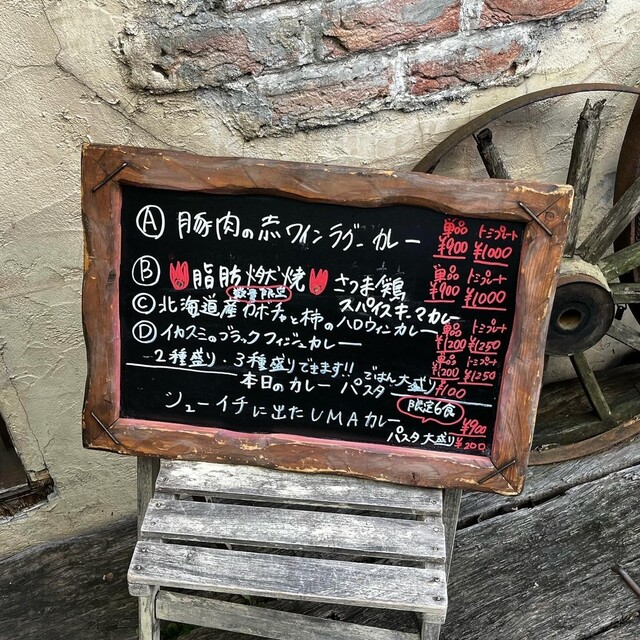 Ⓐ 豚肉の赤ワインラグーカレー 単品 ¥900 トミプレート ¥1000
Ⓑ 脂肪燃焼 さつま鶏 単品 ¥900 トミプレート ¥1000
数量限定 スパイスキーマカレー
Ⓒ 北海道産カボチャと柿のハロウィンカレー 単品 ¥1200 トミプレート ¥1250
Ⓓ イカスミのブラックフィジーカレー 単品 ¥1200 トミプレート ¥1250
2種盛り・3種盛りできます!! ごはん大盛り ¥100
本日のカレーパスタ
限定6食
シューイチに出たUMAカレー ¥900
パスタ大盛り ¥200